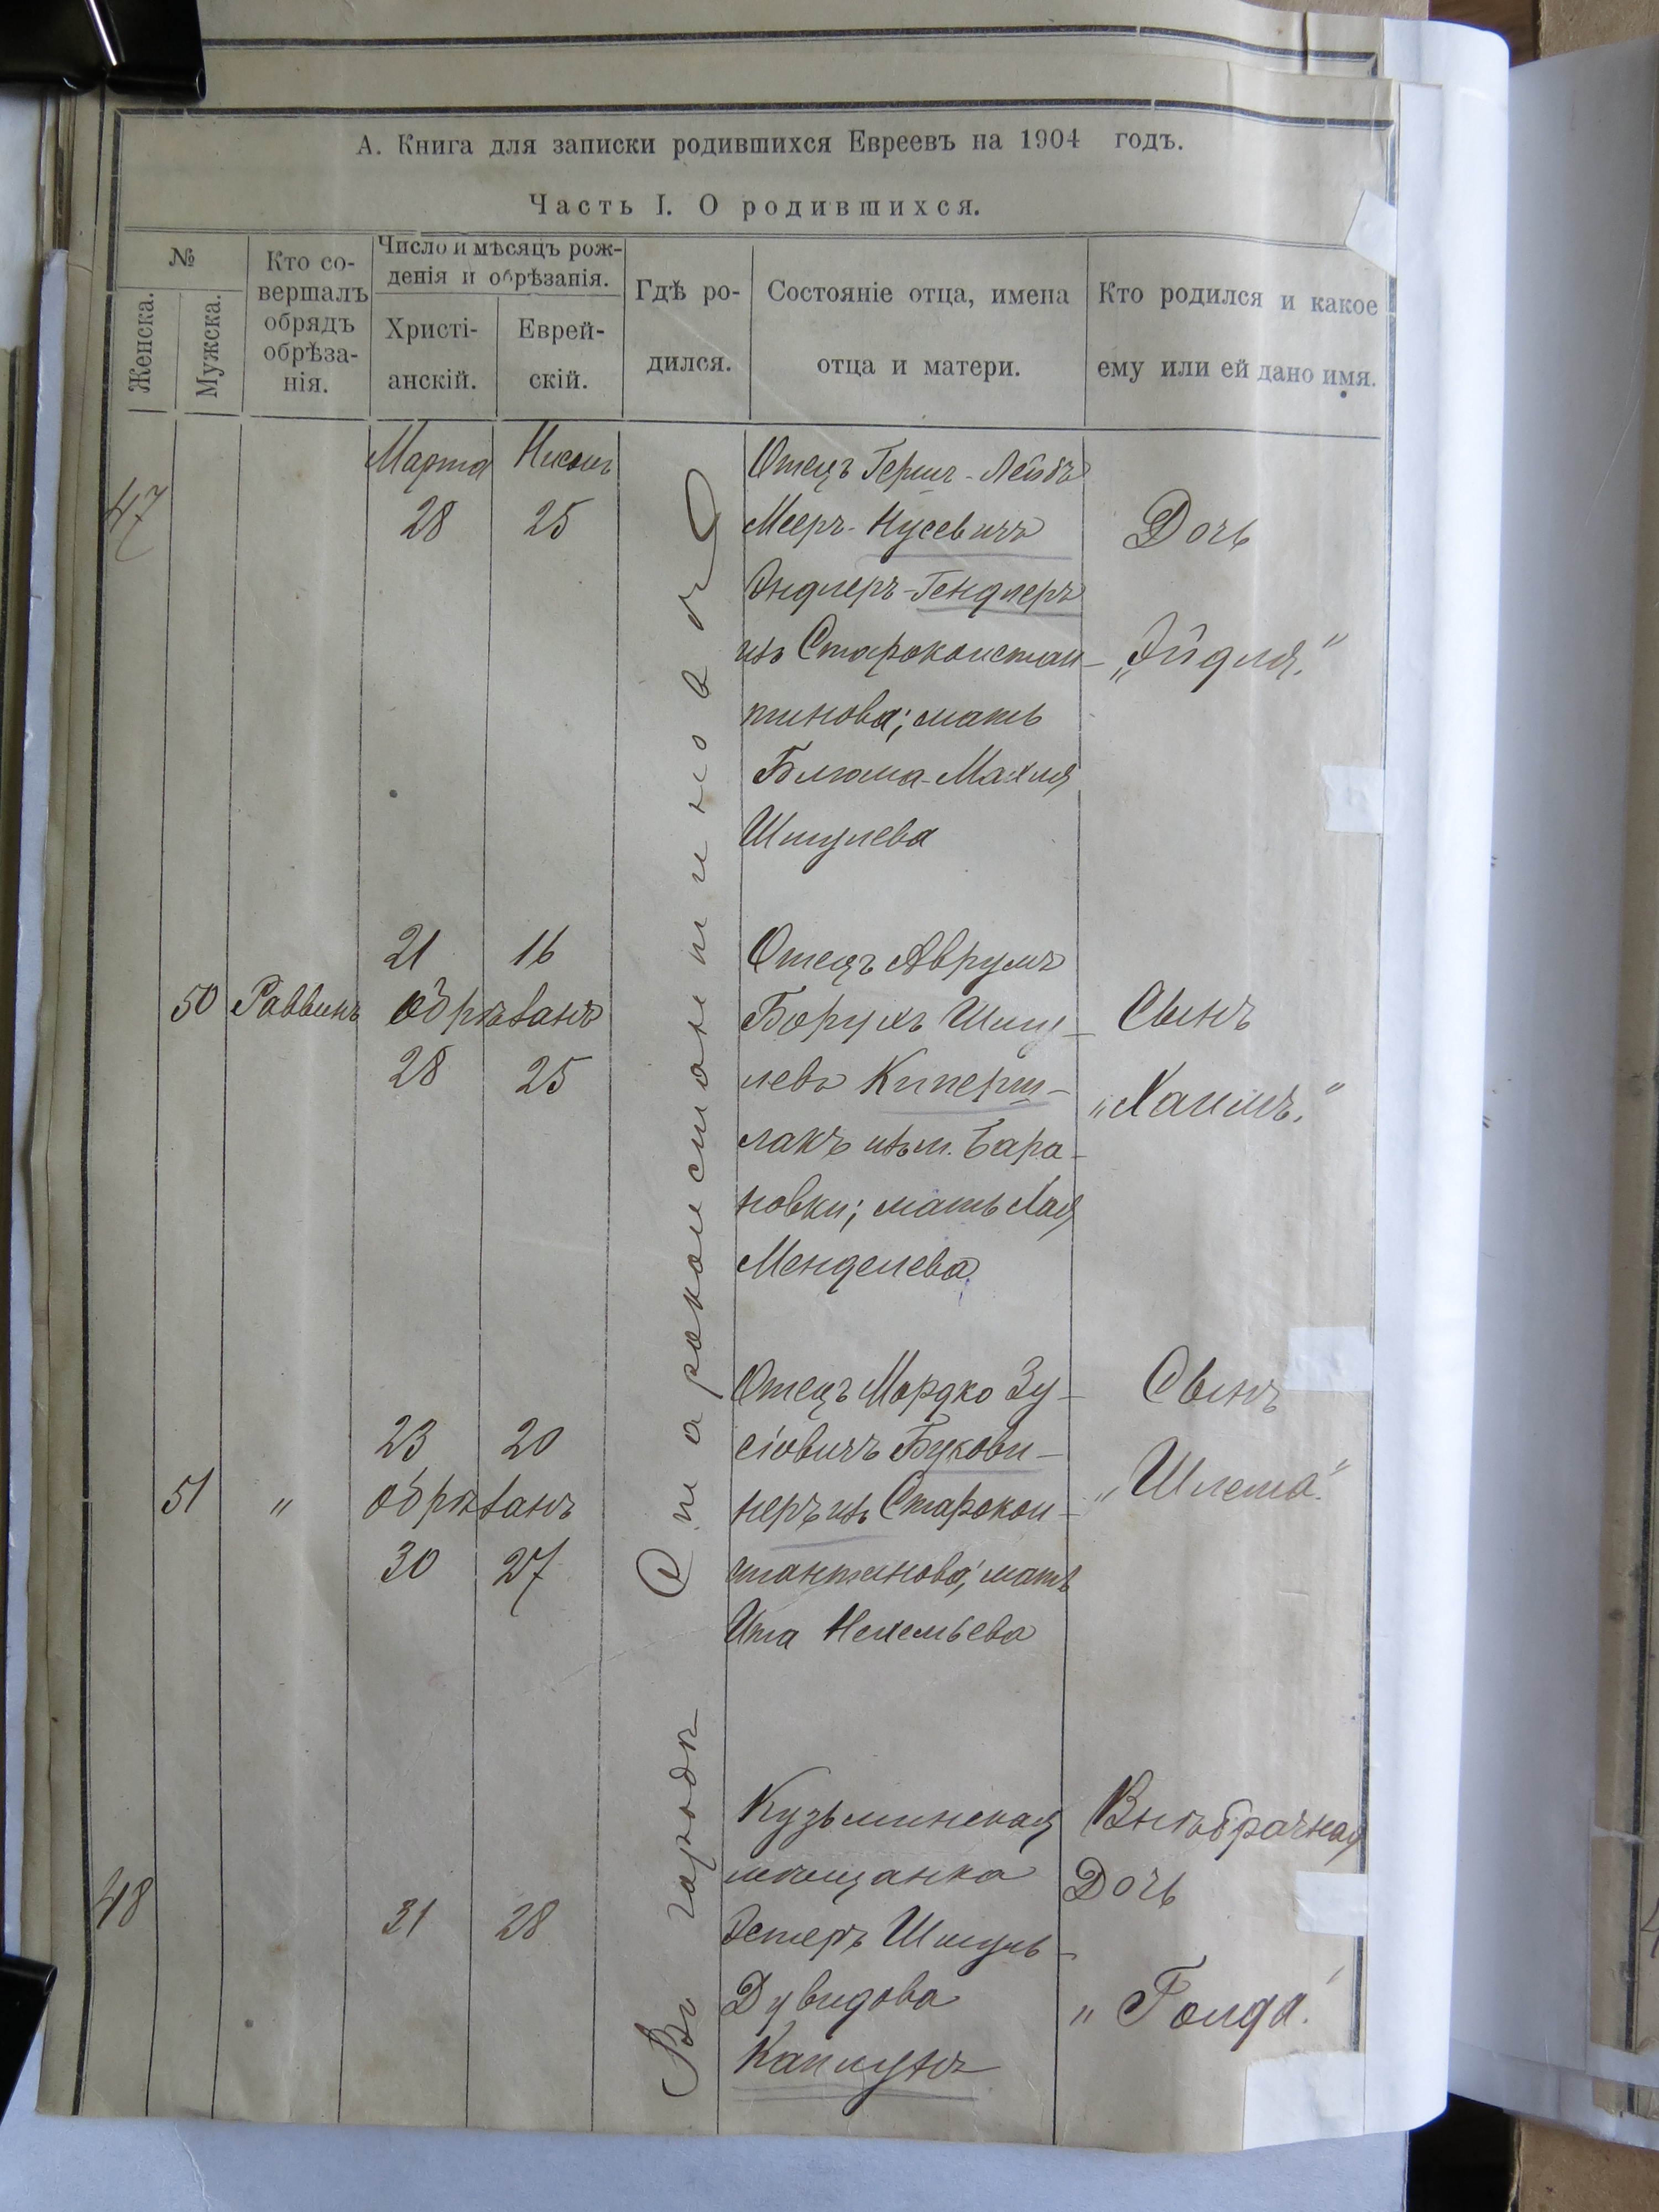 А. Книга для записки родившихся Евреевъ на 1904 годъ.
Часть I. О родившихся.
№
Женска.
Мужска.
Кто со-
вершалъ
обрядъ
обрѣза-
нія.
Число и мѣсяцъ рож-
денія и обрѣзанія.
Христі-
анскій.
Еврей-
скій.
Гдѣ ро-
дился.
Состояніе отца, имена
отца и матери.
Кто родился и какое
ему или ей дано имя.
Въ городѣ Староконстантиновѣ
47
Марта Нисонъ
28 25
Отецъ Гершъ-Лейбъ
Мееръ-Нусевичъ
Эндлеръ-Гендлеръ
изъ Староконстан-
тинова; мать
Блюма-Махля
Шмулева
Дочь
„Эйдля."
50 Раввинъ
21 16
обрѣзанъ
28 25
Отецъ Аврумъ
Борухъ Шму-
левъ Киперш-
лакъ изъ м. Бара-
новки; мать Хая
Менделева
Сынъ
„Хаимъ."
51 "
23 20
обрѣзанъ
30 27
Отецъ Мордко Зу-
сіовичъ Букови-
неръ изъ Старокон-
стантинова; мать
Ита Нехемьева
Сынъ
„Шлема."
48
31 28
Кузьминская
мѣщанка
Эстеръ Шмуль-
Дувидова
Каплунъ
Внѣбрачная
Дочь
„Голда."